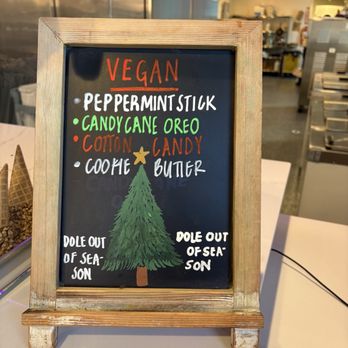 VEGAN
• PEPPERMINT STICK
• CANDY CANE OREO
• COTTON CANDY
• COOKIE BUTTER
DOLE OUT
OF SEA-
SON
DOLE OUT
OF SEA-
SON